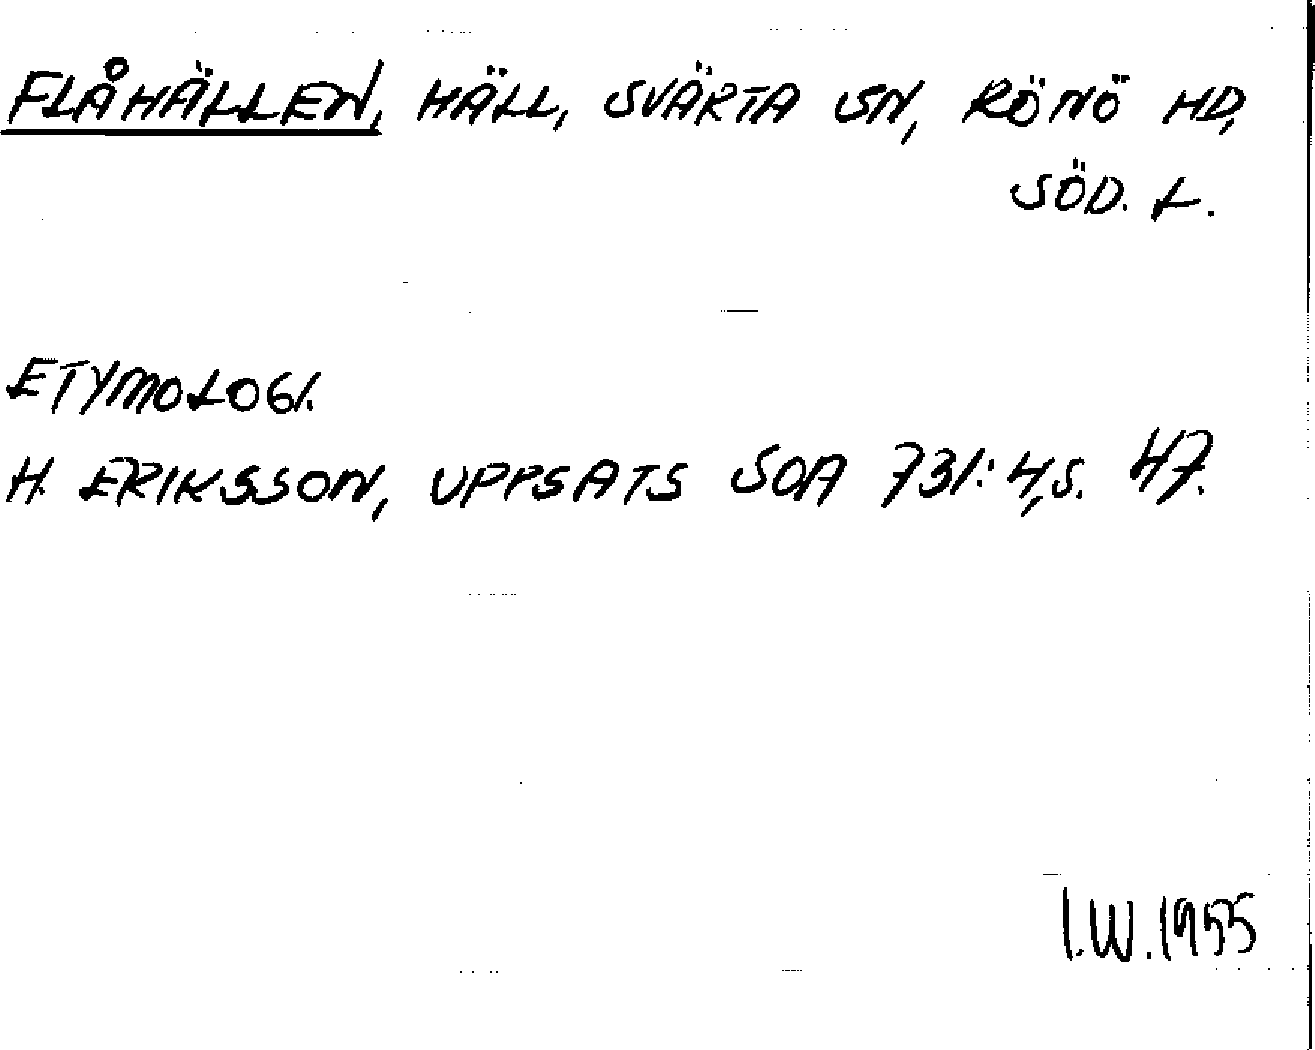 FLÅHÄLLEN, HÄLL, SVÄRTA SN, RÖNÖ HD,
SÖD. L.
ETYMOLOGI.
H. ERIKSSON, UPPSATS SOA 731:4, S. 47.
I.W. 1955